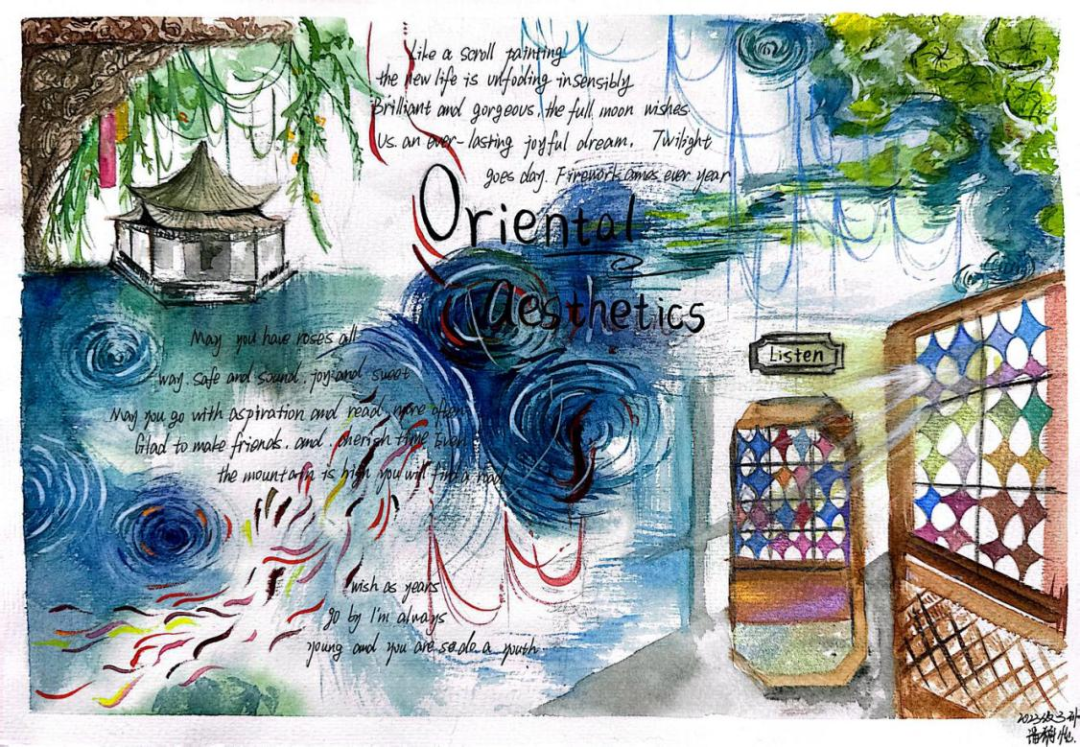 Like a scroll painting
the new life is unfoding insensibly
Brilliant and gorgeous, the full moon wishes
Us. an ever-lasting joyful dream. Twilight
goes day. Firework ames ever year
Oriental
aesthetics
Listen
May you have roses all
way. safe and sound. joy and sweet
May you go with aspiration and read more often
Glad to make friends. and. cherish time Even
the mountain is high you will find a road.
wish as years
go by I'm always
young and you are a youth
2023